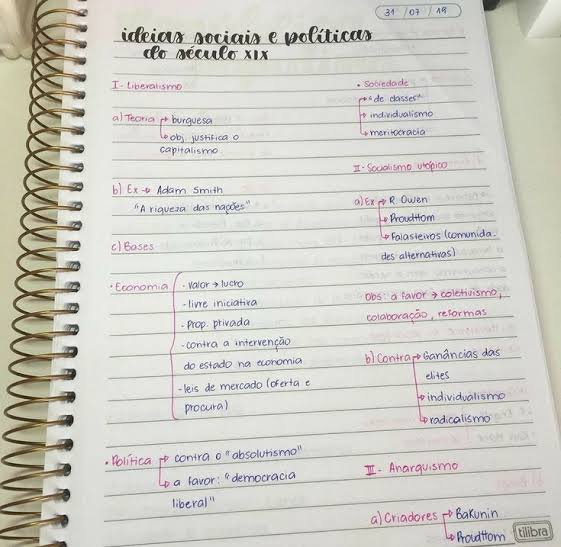 31 / 07 / 19
ideias sociais e políticas
do século XIX
I - Liberalismo
a) Teoria → burguesa
↳ obj. justifica o
capitalismo
b) Ex → Adam Smith
"A riqueza das nações"
c) Bases
• Economia
- valor → lucro
- livre iniciativa
- Prop. privada
- contra a intervenção
do estado na economia
- leis de mercado (oferta e
procura)
• Política → contra o "absolutismo"
↳ a favor: "democracia
liberal"
• Sociedade
→ "de classes"
→ individualismo
↳ meritocracia
II - Socialismo utópico
a) Ex → R. Owen
→ Proudttom
↳ Falasteiros (comunida-
des alternativas)
Obs: a favor → coletivismo,
colaboração, reformas
b) Contra → Ganâncias das
elites
→ individualismo
↳ radicalismo
III - Anarquismo
a) Criadores → Bakunin
↳ Proudttom
tilibra